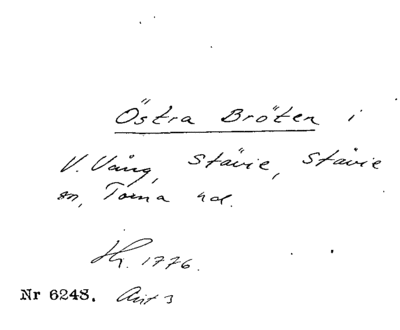 Östra Bröten i
V. Vång, Stävie, Stävie
sn, Torna hd.
Hr. 1776.
Nr 6248. Akt 3